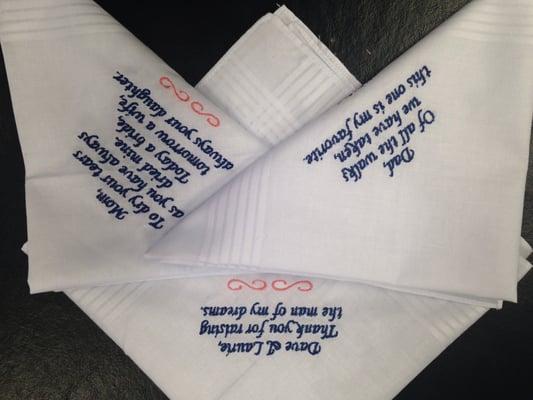 Mom,
To dry your tears
as you have always
dried mine.
Today a bride,
tomorrow a wife,
always your daughter.
Dad,
Of all the walks
we have taken,
this one is my favorite.
Dave & Laurie,
Thank you for raising
the man of my dreams.